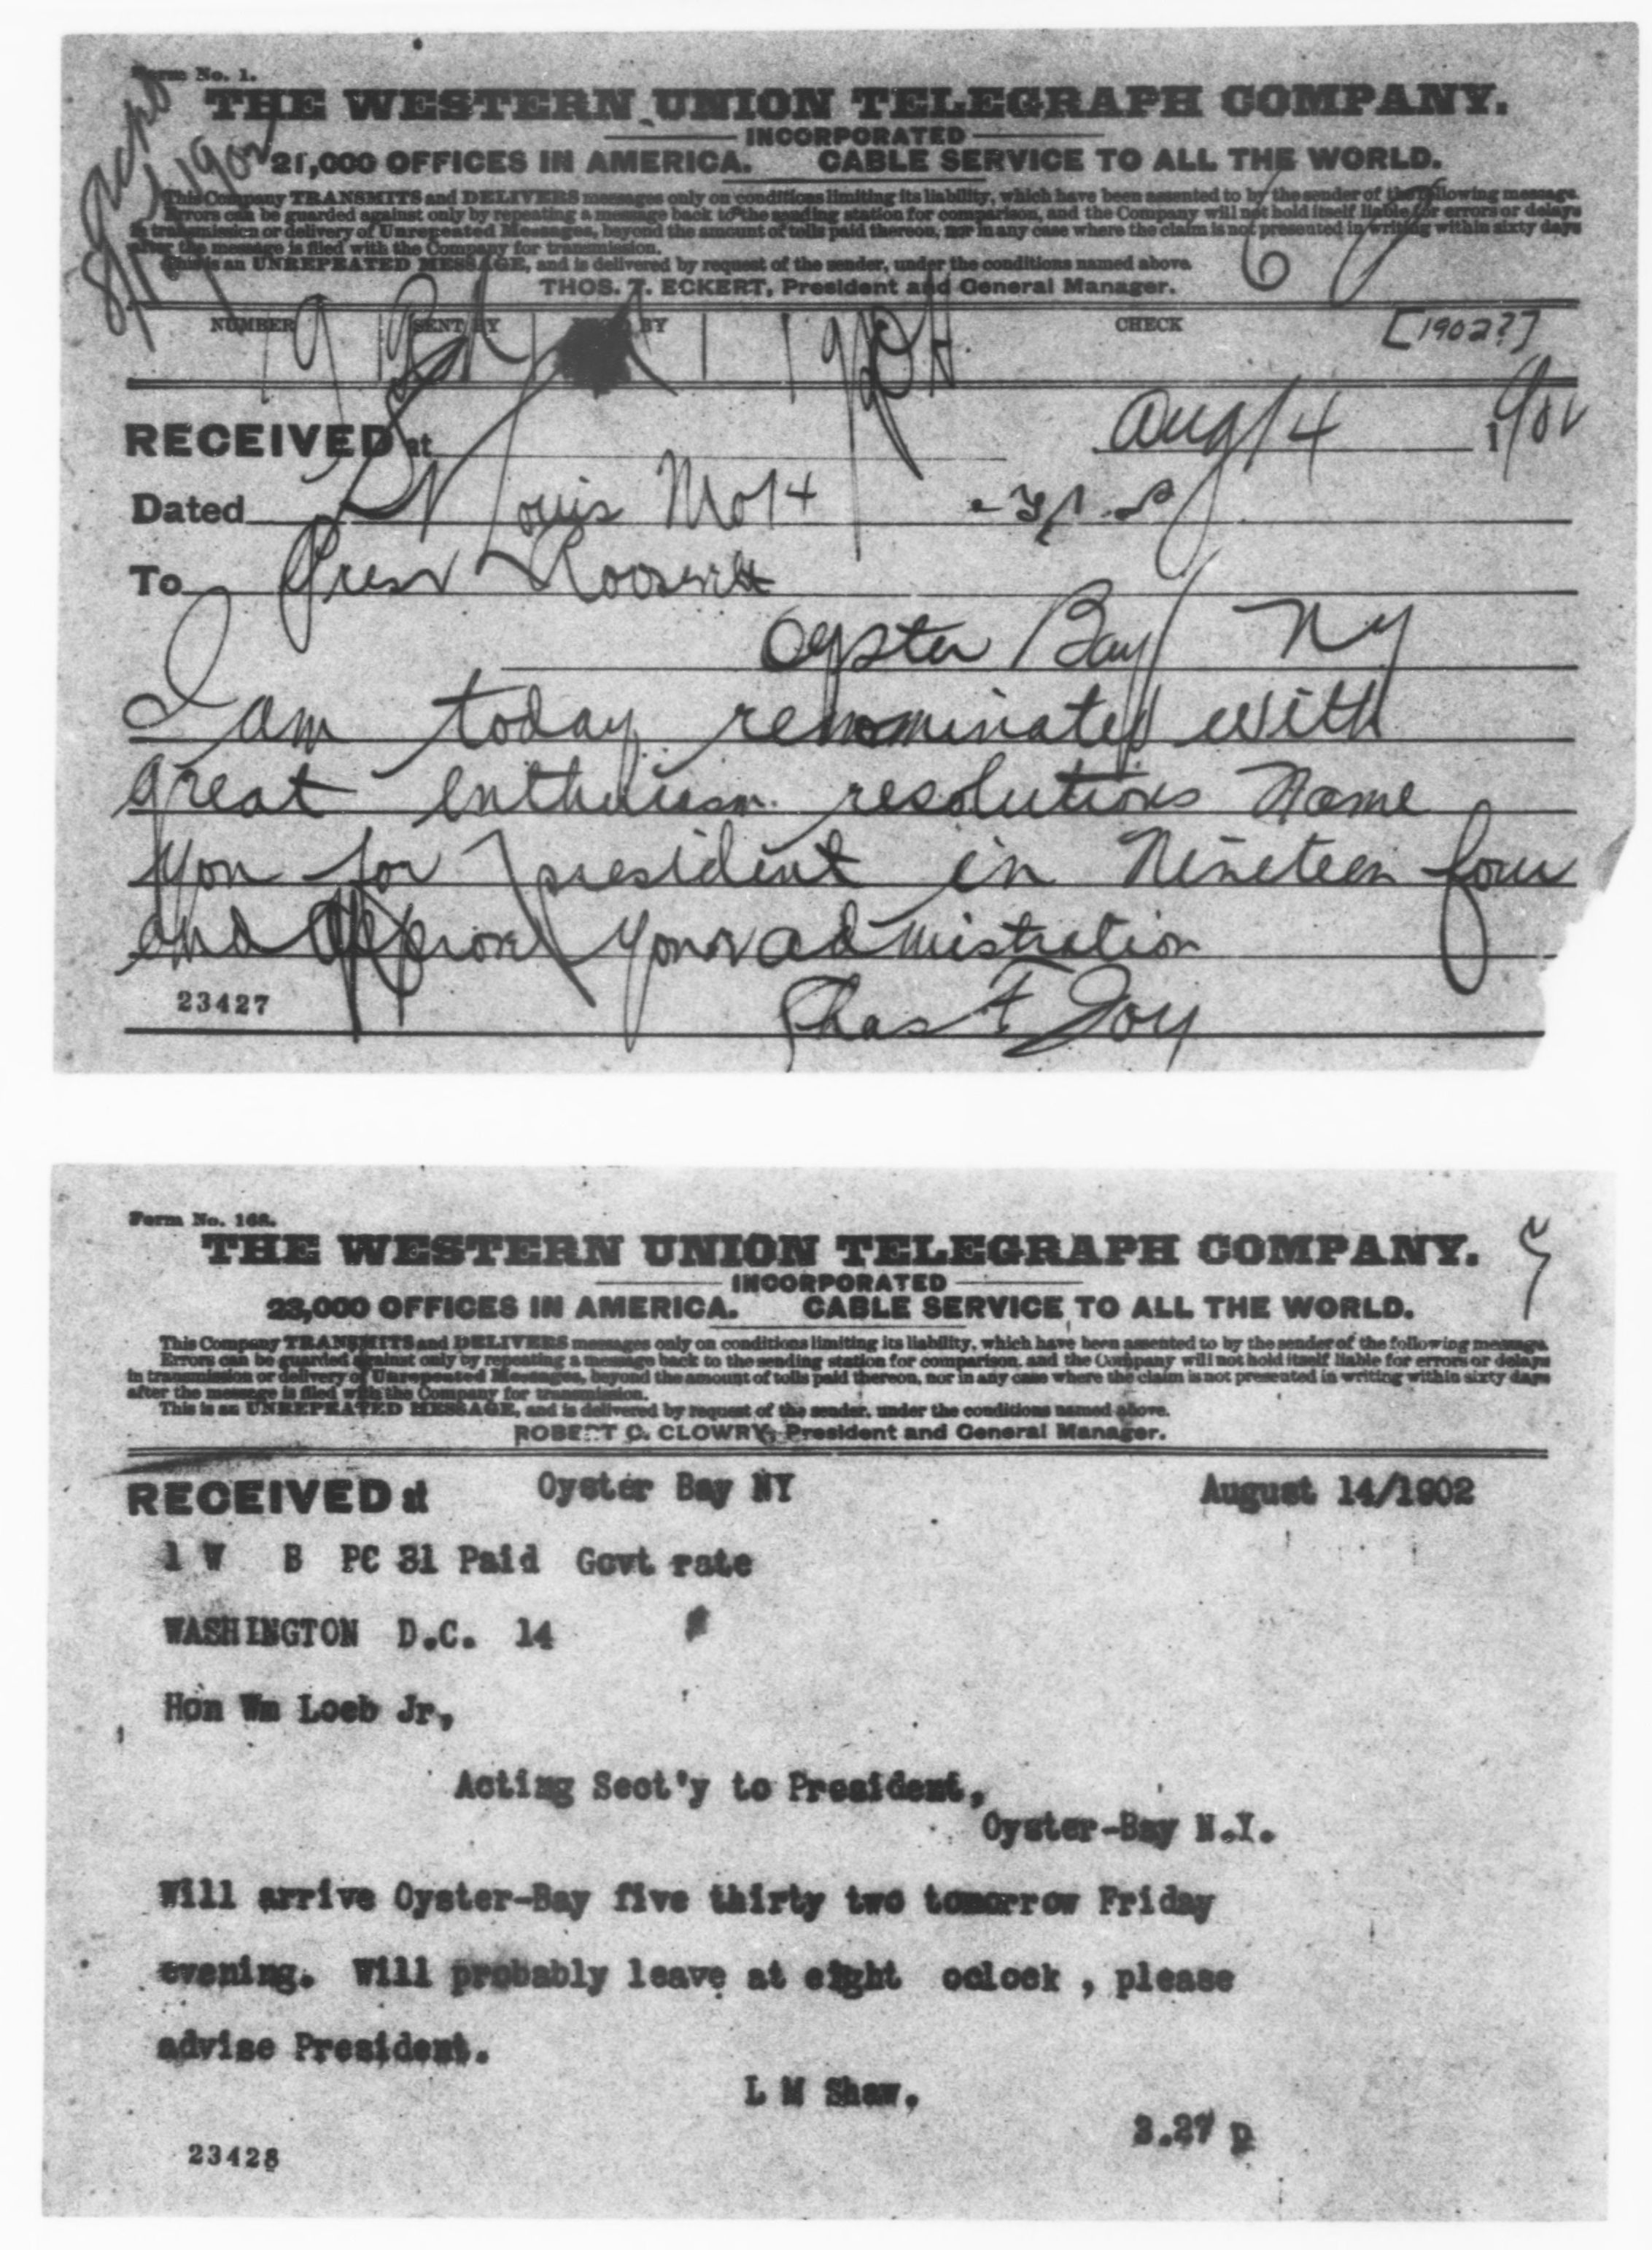 Form No. 1.
THE WESTERN UNION TELEGRAPH COMPANY.
INCORPORATED
21,000 OFFICES IN AMERICA. CABLE SERVICE TO ALL THE WORLD.
This Company TRANSMITS and DELIVERS messages only on conditions limiting its liability, which have been assented to by the sender of the following message.
Errors can be guarded against only by repeating a message back to the sending station for comparison, and the Company will not hold itself liable for errors or delays
in transmission or delivery of Unrepeated Messages, beyond the amount of tolls paid thereon, nor in any case where the claim is not presented in writing within sixty days
after the message is filed with the Company for transmission.
This is an UNREPEATED MESSAGE, and is delivered by request of the sender, under the conditions named above.
THOS. T. ECKERT, President and General Manager.
NUMBER SENT BY BY CHECK [1902?]
RECEIVED at Aug 14 1902
Dated St Louis Mo 14
To Presr Roosevelt
Oyster Bay NY
I am today renominated with
great enthusiasm resolutions name
you for president in Nineteen four
and approve your admistration
23427 Chas F Joy
Form No. 168.
THE WESTERN UNION TELEGRAPH COMPANY.
INCORPORATED
23,000 OFFICES IN AMERICA. CABLE SERVICE TO ALL THE WORLD.
This Company TRANSMITS and DELIVERS messages only on conditions limiting its liability, which have been assented to by the sender of the following message.
Errors can be guarded against only by repeating a message back to the sending station for comparison, and the Company will not hold itself liable for errors or delays
in transmission or delivery of Unrepeated Messages, beyond the amount of tolls paid thereon, nor in any case where the claim is not presented in writing within sixty days
after the message is filed with the Company for transmission.
This is an UNREPEATED MESSAGE, and is delivered by request of the sender, under the conditions named above.
ROBERT C. CLOWRY, President and General Manager.
RECEIVED at Oyster Bay NY August 14/1902
1 W B PC 31 Paid Govt rate
WASHINGTON D.C. 14
Hon Wm Loeb Jr,
Acting Sect'y to President,
Oyster-Bay N.Y.
Will arrive Oyster-Bay five thirty two tomorrow Friday
evening. Will probably leave at eight oclock , please
advise President.
L M Shaw.
3.27 p
23428